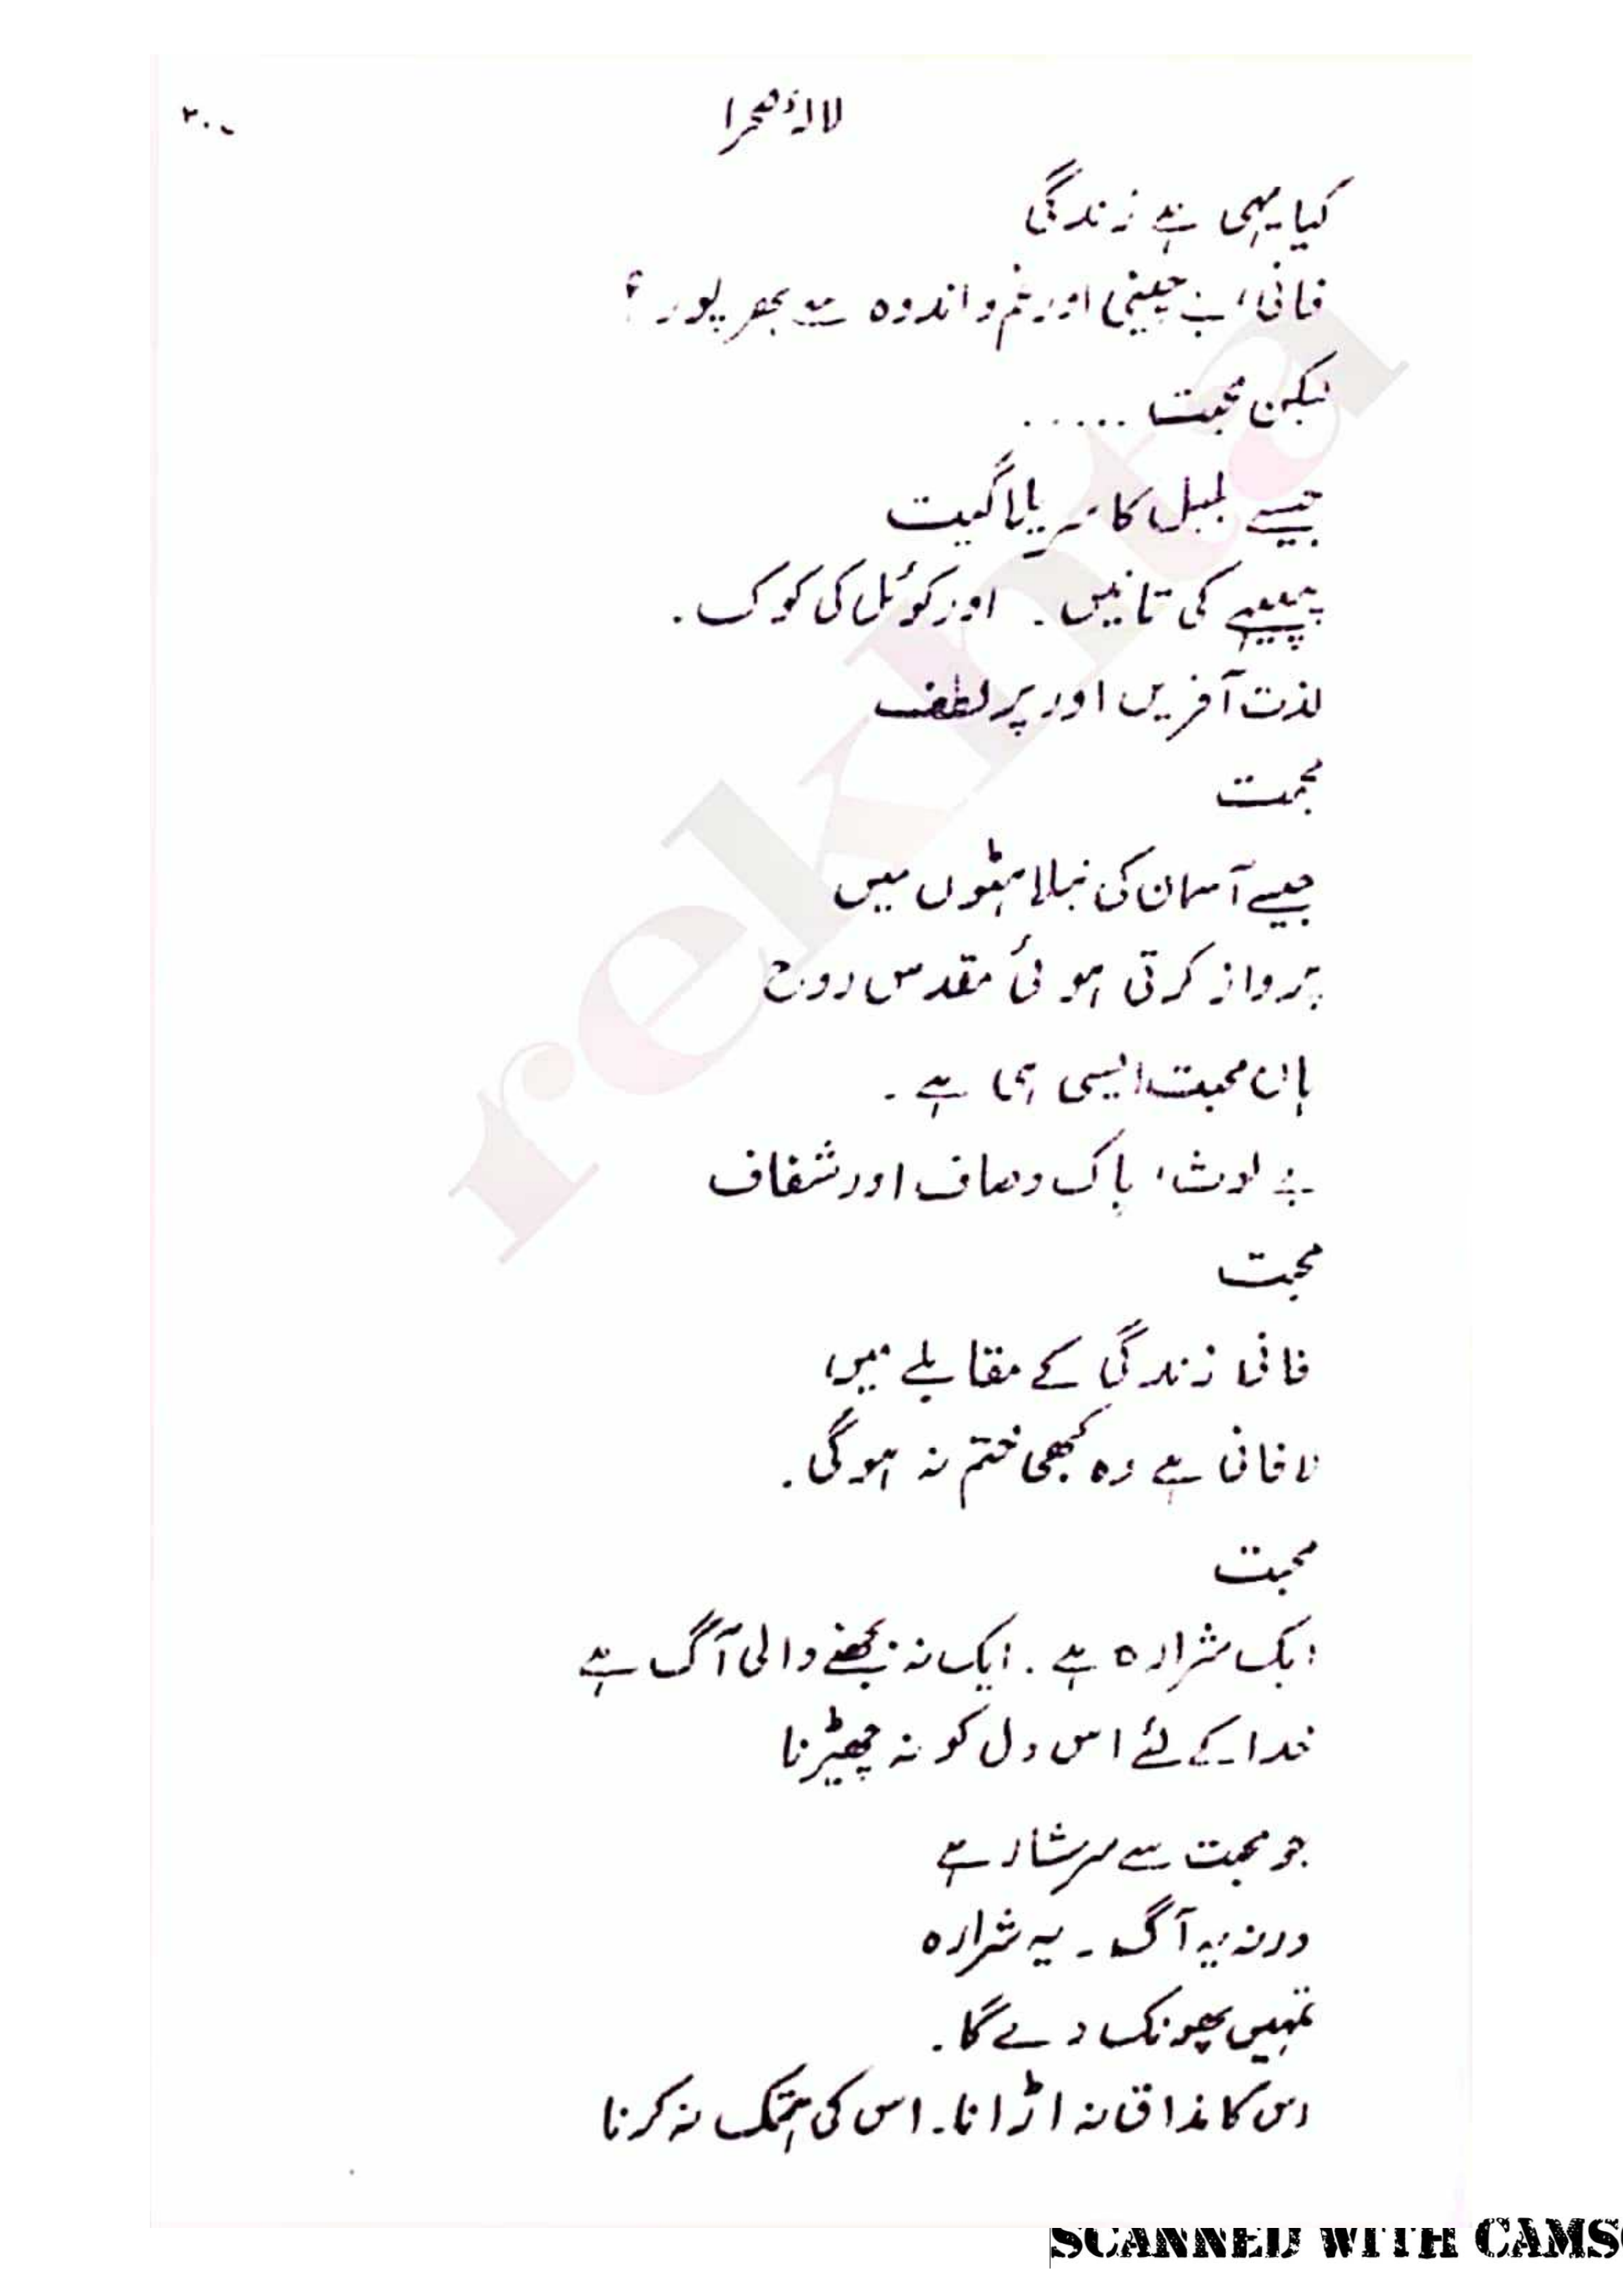 لالۂ صحرا
کیا یہی ہے زندگی
فانی، بے چینی اور غم و اندوہ سے بھرپور؟
لیکن محبت .....
جیسے بلبل کا سریلا گیت
پپیہے کی تانیں۔ اور کوئل کی کوک۔
لذت آفریں اور پر لطف
محبت
جیسے آسمان کی نیلاہٹوں میں
پرواز کرتی ہوئی مقدس روح
ہاں محبت ایسی ہی ہے۔
بے لوث، پاک و صاف اور شفاف
محبت
فانی زندگی کے مقابلے میں،
لافانی ہے وہ کبھی ختم نہ ہوگی۔
محبت
ایک شرارہ ہے۔ ایک نہ بجھنے والی آگ ہے
خدا کے لئے اس دل کو نہ چھیڑنا
جو محبت سے سرشار ہے
ورنہ یہ آگ۔ یہ شرارہ
تمہیں پھونک دے گا۔
اس کا مذاق نہ اڑانا۔ اس کی ہتک نہ کرنا
rekhta
SCANNED WITH CAMS